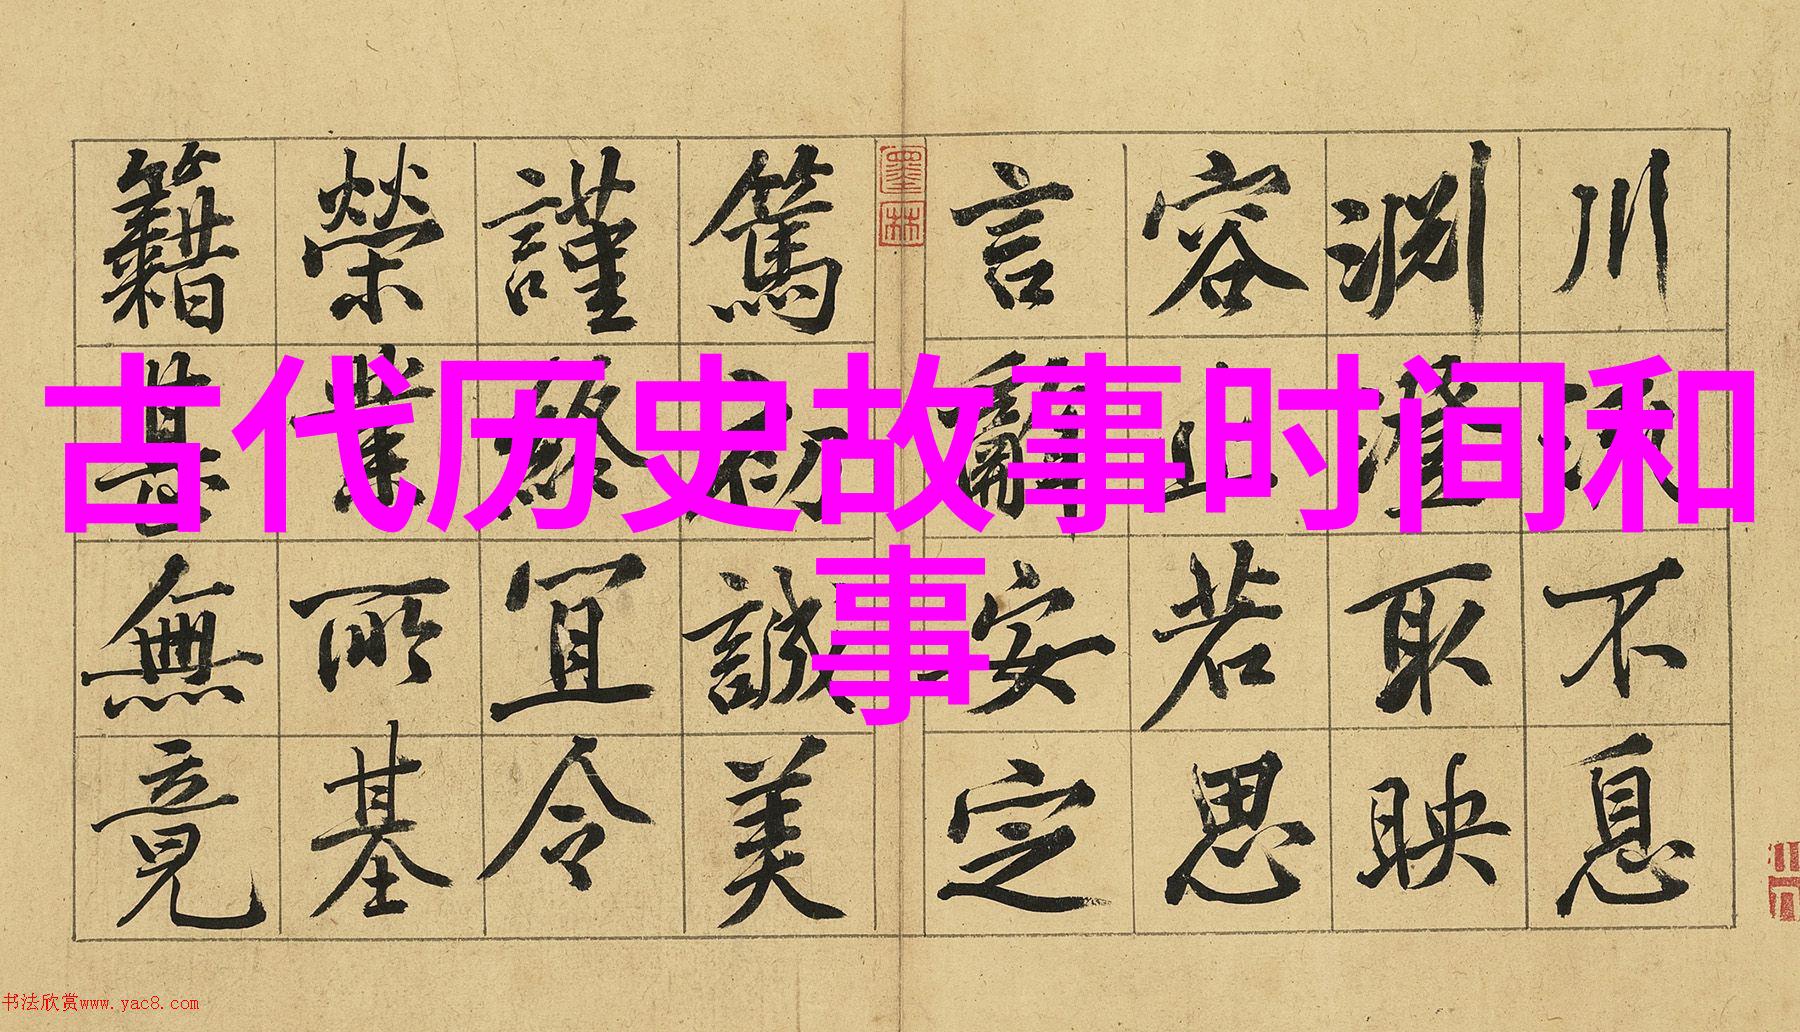 古代历史故事时间和
事
川流不息
渊澄取映
容止若思
言辭安定
墨林
篤初誠美
謹終冝令
榮業所基
籍甚無竟
书法欣赏www.yac8.com